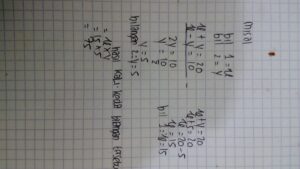 misal
bil 1 = x
bil 2 = y
x + y = 20
x - y = 10 -
2y = 10
y = 10/2
y = 5
bilangan 2 = y = 5
x + y = 20
x + 5 = 20
x = 20 - 5
x = 15
bil 1 = x = 15
hasil kali kedua bilangan tersebut
= x × y
= 15 × 5
= 75